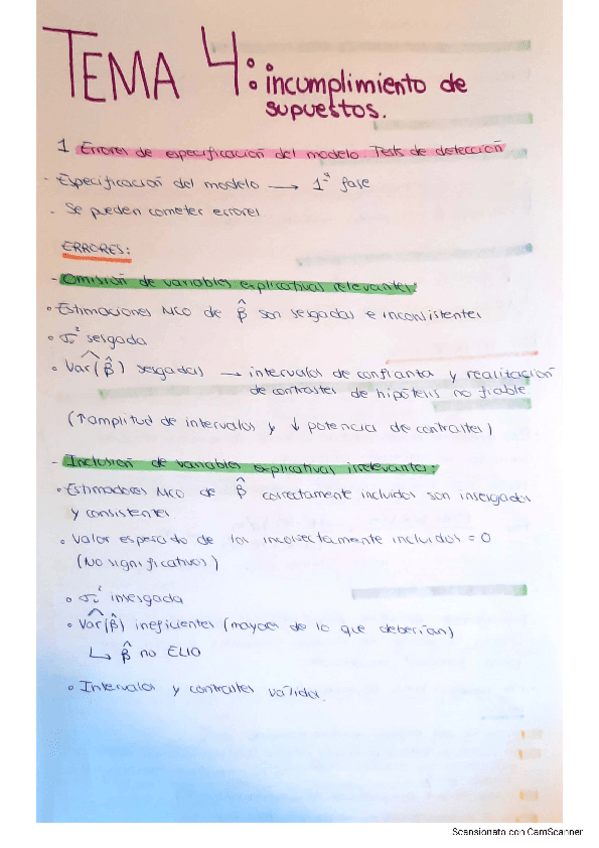 TEMA 4: incumplimiento de
supuestos.
1 Errores de especificación del modelo. Tests de detección
- Especificación del modelo → 1ª fase
- Se pueden cometer errores
ERRORES:
- Omisión de variables explicativas relevantes:
• Estimaciones MCO de β̂ son sesgadas e inconsistentes
• σ² sesgada
• Var(β̂) sesgadas → intervalos de confianza y realización
de contrastes de hipótesis no fiable
(↑amplitud de intervalos y ↓ potencia de contrastes)
- Inclusión de variables explicativas irrelevantes:
• Estimadores MCO de β̂ correctamente incluidos son insesgados
y consistentes
• Valor esperado de los incorrectamente incluidos = 0
(No significativos)
• σ² insesgada
• Var(β̂) ineficientes (mayores de lo que deberían)
↳ β̂ no ELIO
• Intervalos y contrastes válidos.
Scansionato con CamScanner